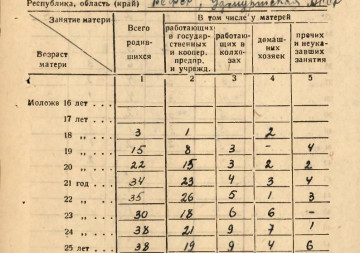 Республика, область (край) РСФСР, Удмуртская АССР
Занятие матери
Возраст матери
Всего родив- шихся
В том числе у матерей
работающих в государ- ственных и коопер. предпр. и учрежд.
работаю- щих в колхо- зах
домаш- них хозяек
прочих и неука- завших занятия
1 2 3 4 5
Моложе 16 лет . . .
17 лет . . .
18 „ . . . 3 1 2
19 „ . . . 15 8 3 - 4
20 „ . . . 22 15 3 2 2
21 год . . . 34 23 4 3 4
22 „ . . . 35 26 5 1 3
23 „ . . . 30 18 6 6 -
24 „ . . . 38 21 9 7 1
25 лет . . . 38 19 9 4 6